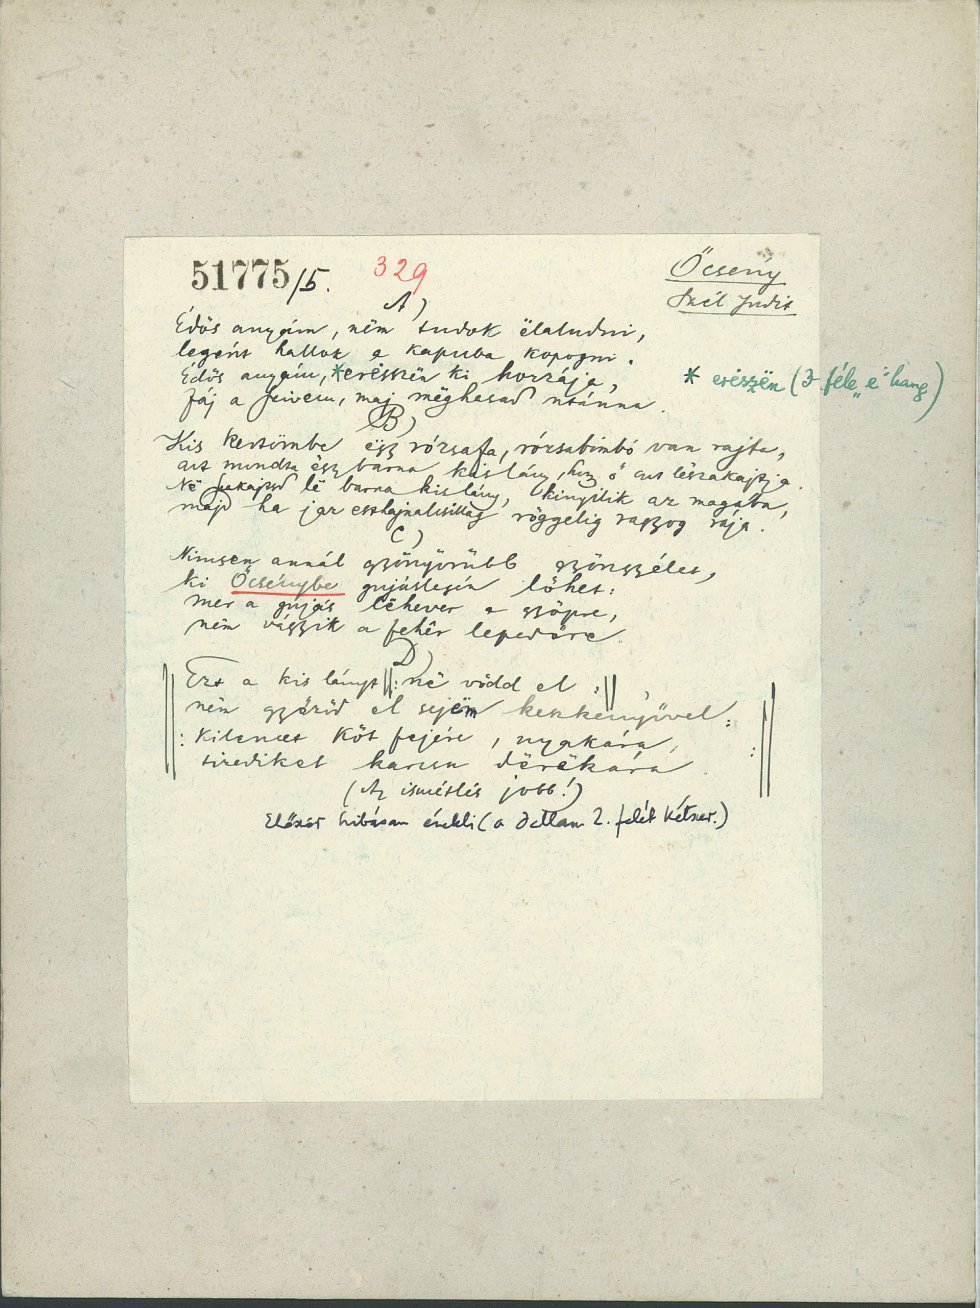 51775/5.
329
Őcsény
Szél Judit
A)
Édös anyám, nëm tudok ëlaludni,
legént hallok a kapuba kopogni.
Édös anyám, *erésszën ki hozzája,
fáj a szivem, maj mëghasad utánna.
* erésszën (3 féle „e" hang)
B)
Kis kertömbe ëgy rózsafa, rózsabimbó van rajta,
azt mondta ëgy barna kis lány, hogy ő azt lészakajtja.
Në szakajtsd lë barna kis lány, kinyílik az magába,
majd ha jaz eszthajnalcsillag röggelig ragyog rája.
C)
Nincsen annál gyönyörűbb gyöngyélet,
ki Őcsénybe gujáslegén löhet:
mer a gujás lëhever a gyöpre,
nëm vágyik a fehér lepedőre.
D)
Ezt a kis lányt ‖: në vödd el :‖,
nëm győzöd el sejëm keszkenyővel:
: Kilencet köt fejére, nyakára,
tizediket karcsu dërëkára. :
(Az ismétlés jobb!)
Először hibásan énekli (a dallam 2. felét kétszer.)